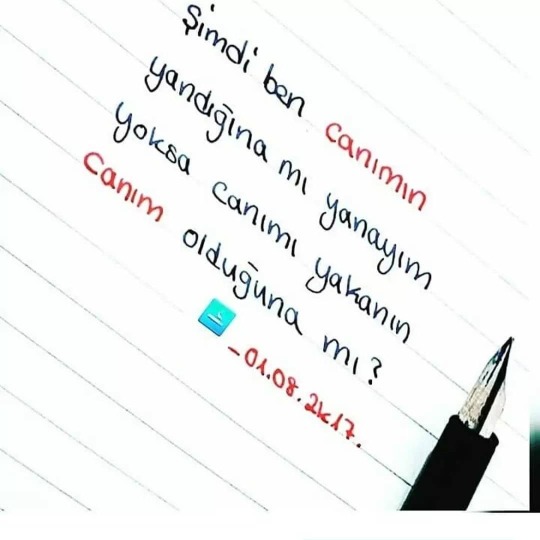 Şimdi ben canımın
yandığına mı yanayım
Yoksa canımı yakanın
canım olduğuna mı?
-01.08.2k17.